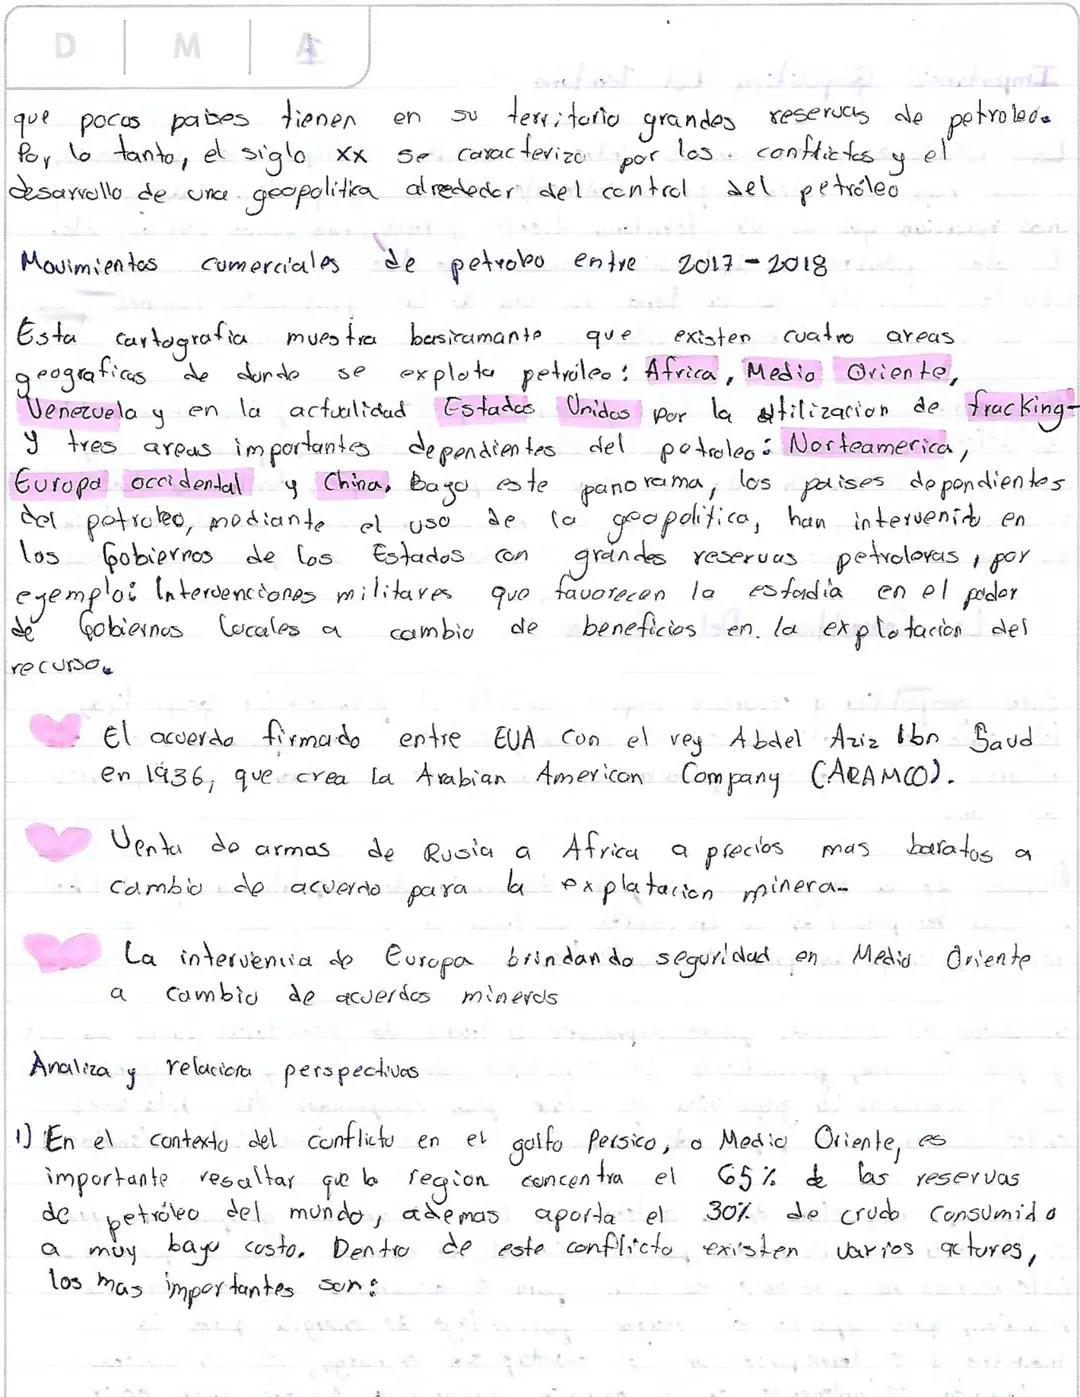 D M A
que pocos paises tienen en su territorio grandes reservas de petroleo.
Por lo tanto, el siglo XX se caracteriza por los conflictos y el
desarrollo de una geopolitica alrededor del control del petróleo
Movimientos comerciales de petroleo entre 2017-2018
Esta cartografia muestra basicamante que existen cuatro areas
geograficas de donde se explota petróleo: Africa, Medio Oriente,
Venezuela y en la actualidad Estados Unidos por la utilizacion de fracking
y tres areas importantes dependientes del petroleo: Norteamerica,
Europa occidental y China. Bago este panorama, los paises dependientes
del petroleo, mediante el uso de la geopolitica, han intervenido en
los Gobiernos de los Estados con grandes reservas petroleras, por
ejemplo: Intervenciones militares que favorecen la estadia en el poder
de Gobiernos locales a cambio de beneficios en la explotación del
recurso.
El acuerdo firmado entre EUA con el rey Abdel Aziz Ibn Saud
en 1936, que crea la Arabian American Company (ARAMCO).
Venta de armas de Rusia a Africa a precios mas baratos a
cambio de acuerdo para la explatacion minera.
La intervencia de Europa brindando seguridad en Medio Oriente
a cambio de acuerdos mineros
Analiza y relaciona perspectivas
1) En el contexto del conflicto en el golfo Persico, o Medio Oriente, es
importante resaltar que la region concentra el 65% de las reservas
de petróleo del mundo, ademas aporta el 30% de crudo consumido
a muy bajo costo. Dentro de este conflicto existen varios actores,
los mas importantes son: